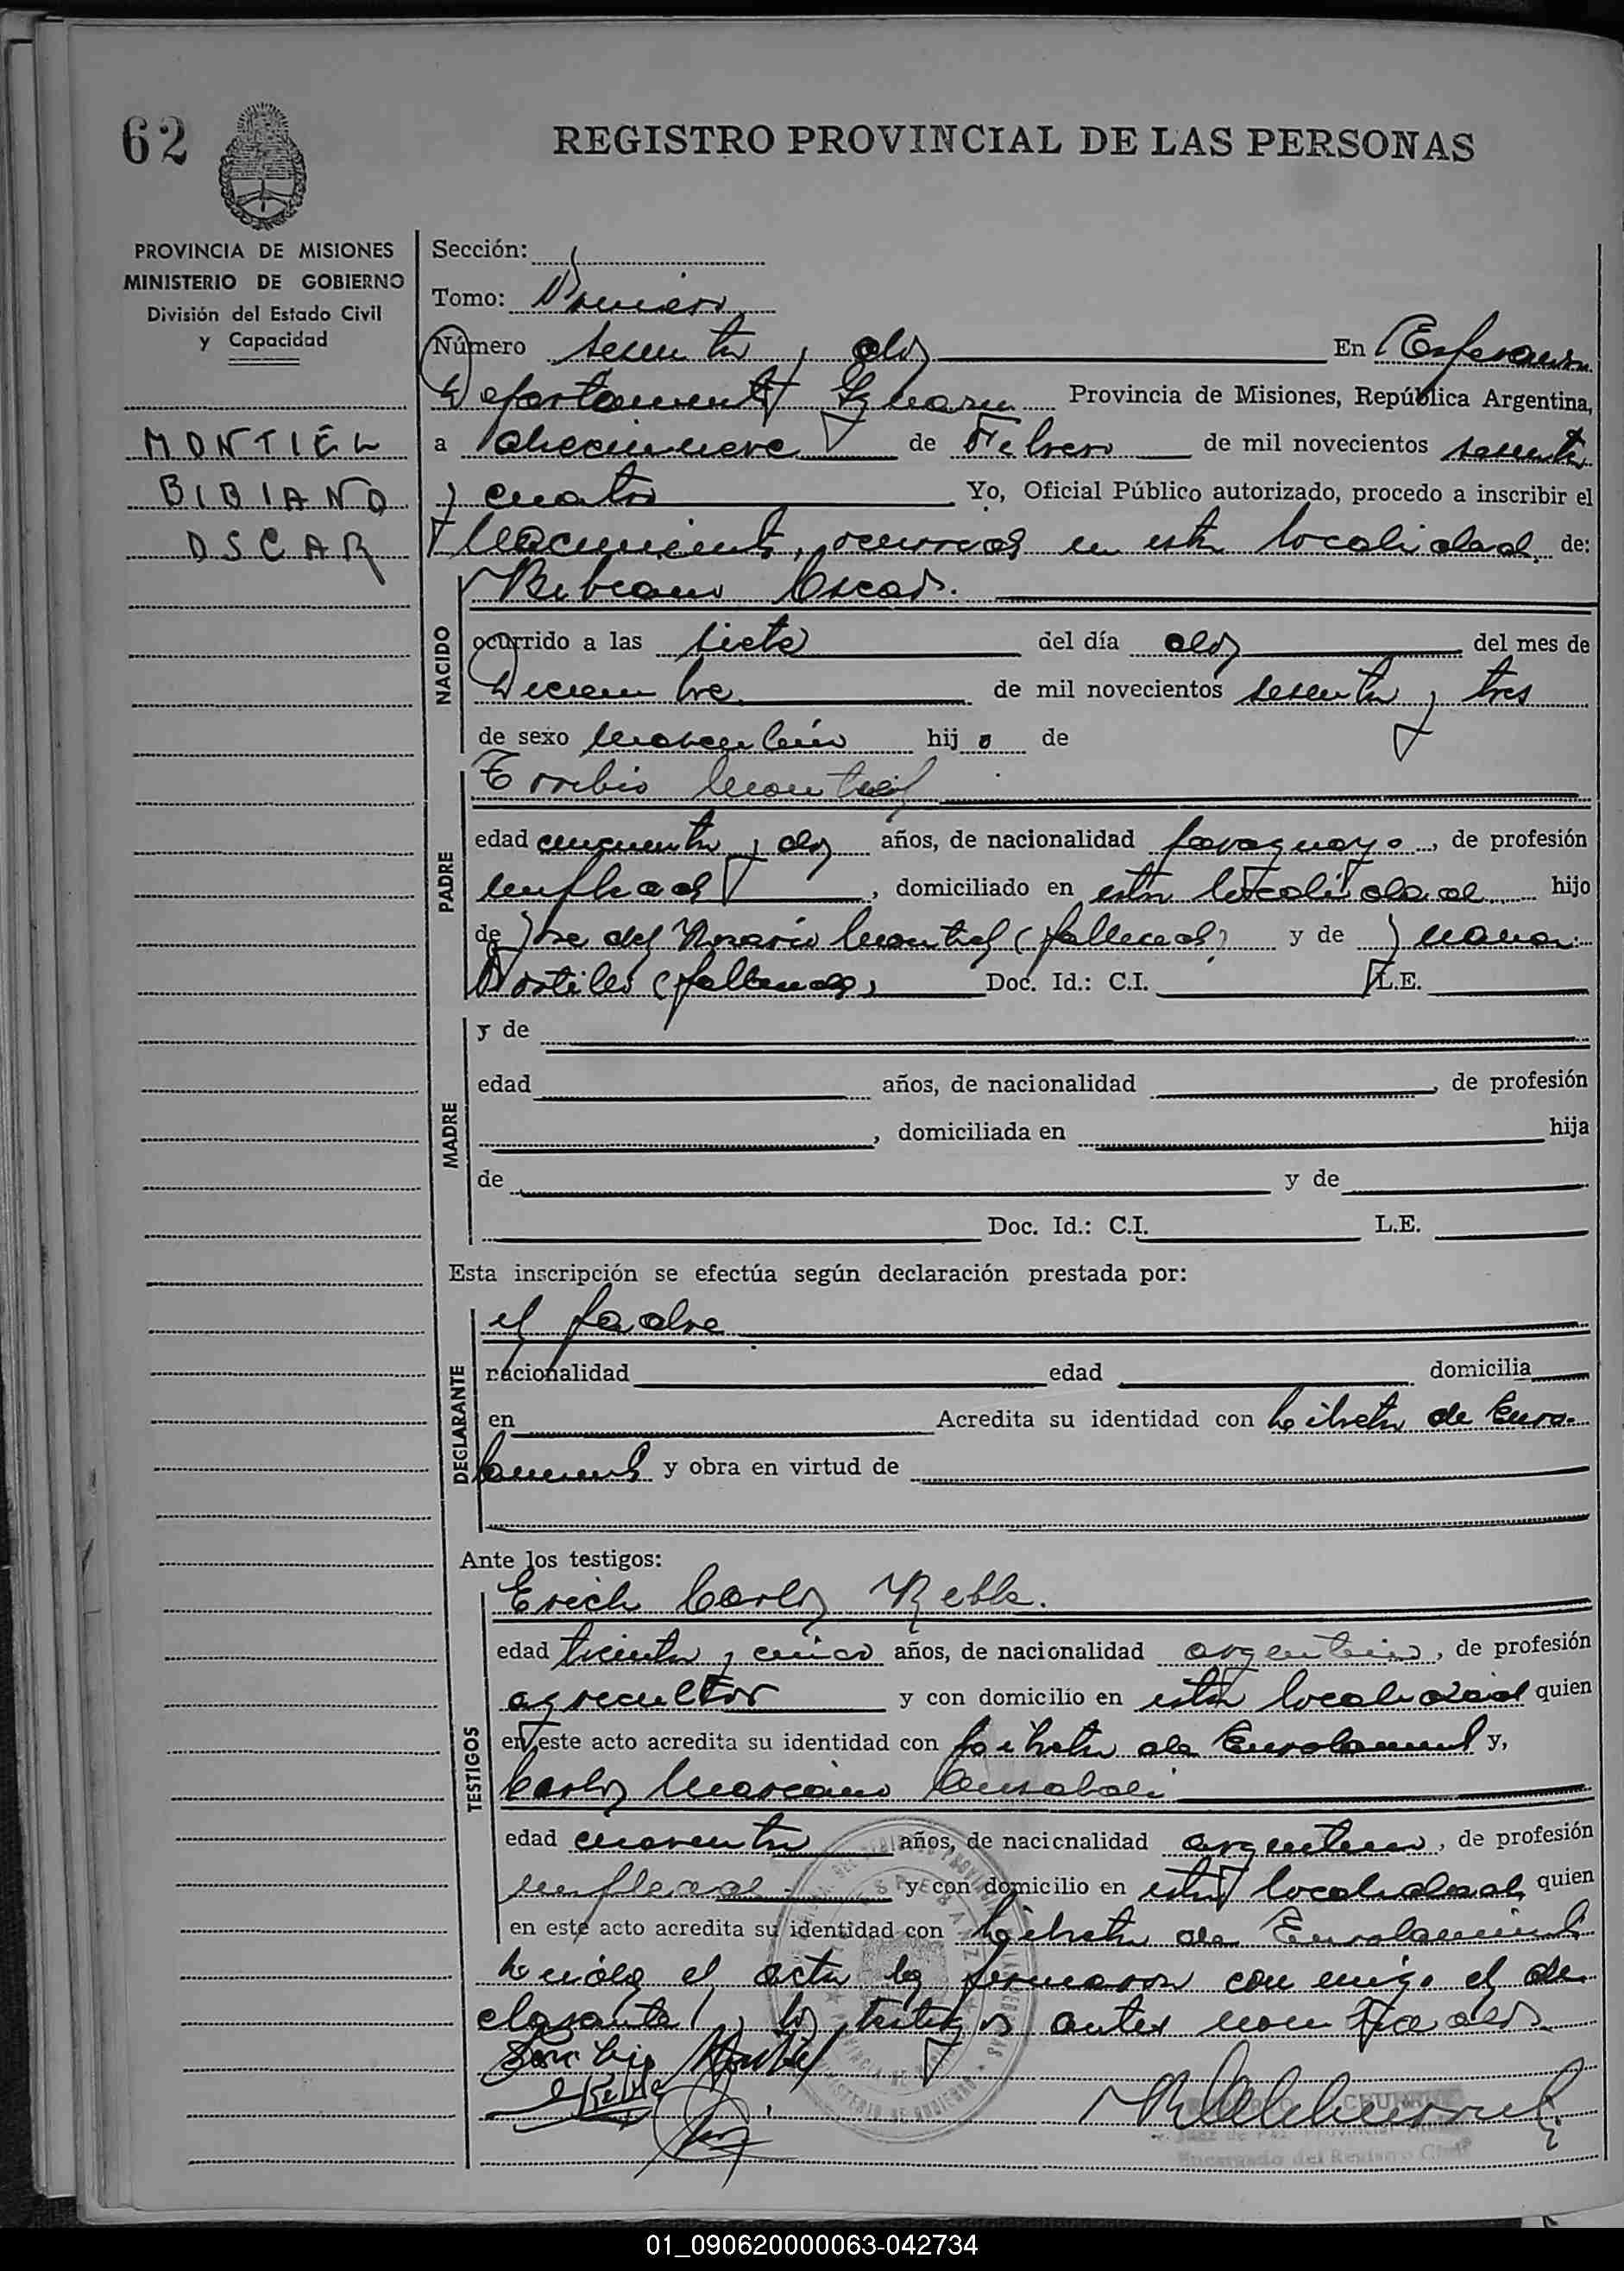 62
REGISTRO PROVINCIAL DE LAS PERSONAS
PROVINCIA DE MISIONES
MINISTERIO DE GOBIERNO
División del Estado Civil
y Capacidad
MONTIEL
BIBIANO
OSCAR
Sección:
Tomo: Primero
Número sesenta y dos En Esperanza
Departamento Iguazu Provincia de Misiones, República Argentina,
a diecinueve de Febrero de mil novecientos sesenta
y cuatro Yo, Oficial Público autorizado, procedo a inscribir el
Nacimiento, ocurrido en esta localidad, de:
NACIDO
Bibiano Oscar.
ocurrido a las siete del día dos del mes de
Diciembre de mil novecientos sesenta y tres
de sexo masculino hijo de
PADRE
Toribio Montiel
edad cincuenta y dos años, de nacionalidad paraguayo, de profesión
empleado, domiciliado en esta localidad hijo
de José del Rosario Montiel (fallecido) y de Juana
Portillo (fallecida) Doc. Id.: C.I. L.E.
MADRE
y de
edad años, de nacionalidad , de profesión
, domiciliada en hija
de y de
Doc. Id.: C.I. L.E.
Esta inscripción se efectúa según declaración prestada por:
DECLARANTE
el padre
nacionalidad edad domicilia
en Acredita su identidad con Libreta de Enro-
lamiento y obra en virtud de
Ante los testigos:
TESTIGOS
Erich Carlos
edad treinta y cinco años, de nacionalidad argentino, de profesión
agricultor y con domicilio en esta localidad quien
en este acto acredita su identidad con Libreta de Enrolamiento y,
Carlos Marciano
edad cuarenta años, de nacionalidad argentino, de profesión
empleado y con domicilio en esta localidad quien
en este acto acredita su identidad con Libreta de Enrolamiento
Leída el acta la firmaron conmigo el de-
clarante y los testigos antes nombrados.
Toribio Montiel
Encargado del Registro Civil
01_090620000063-042734